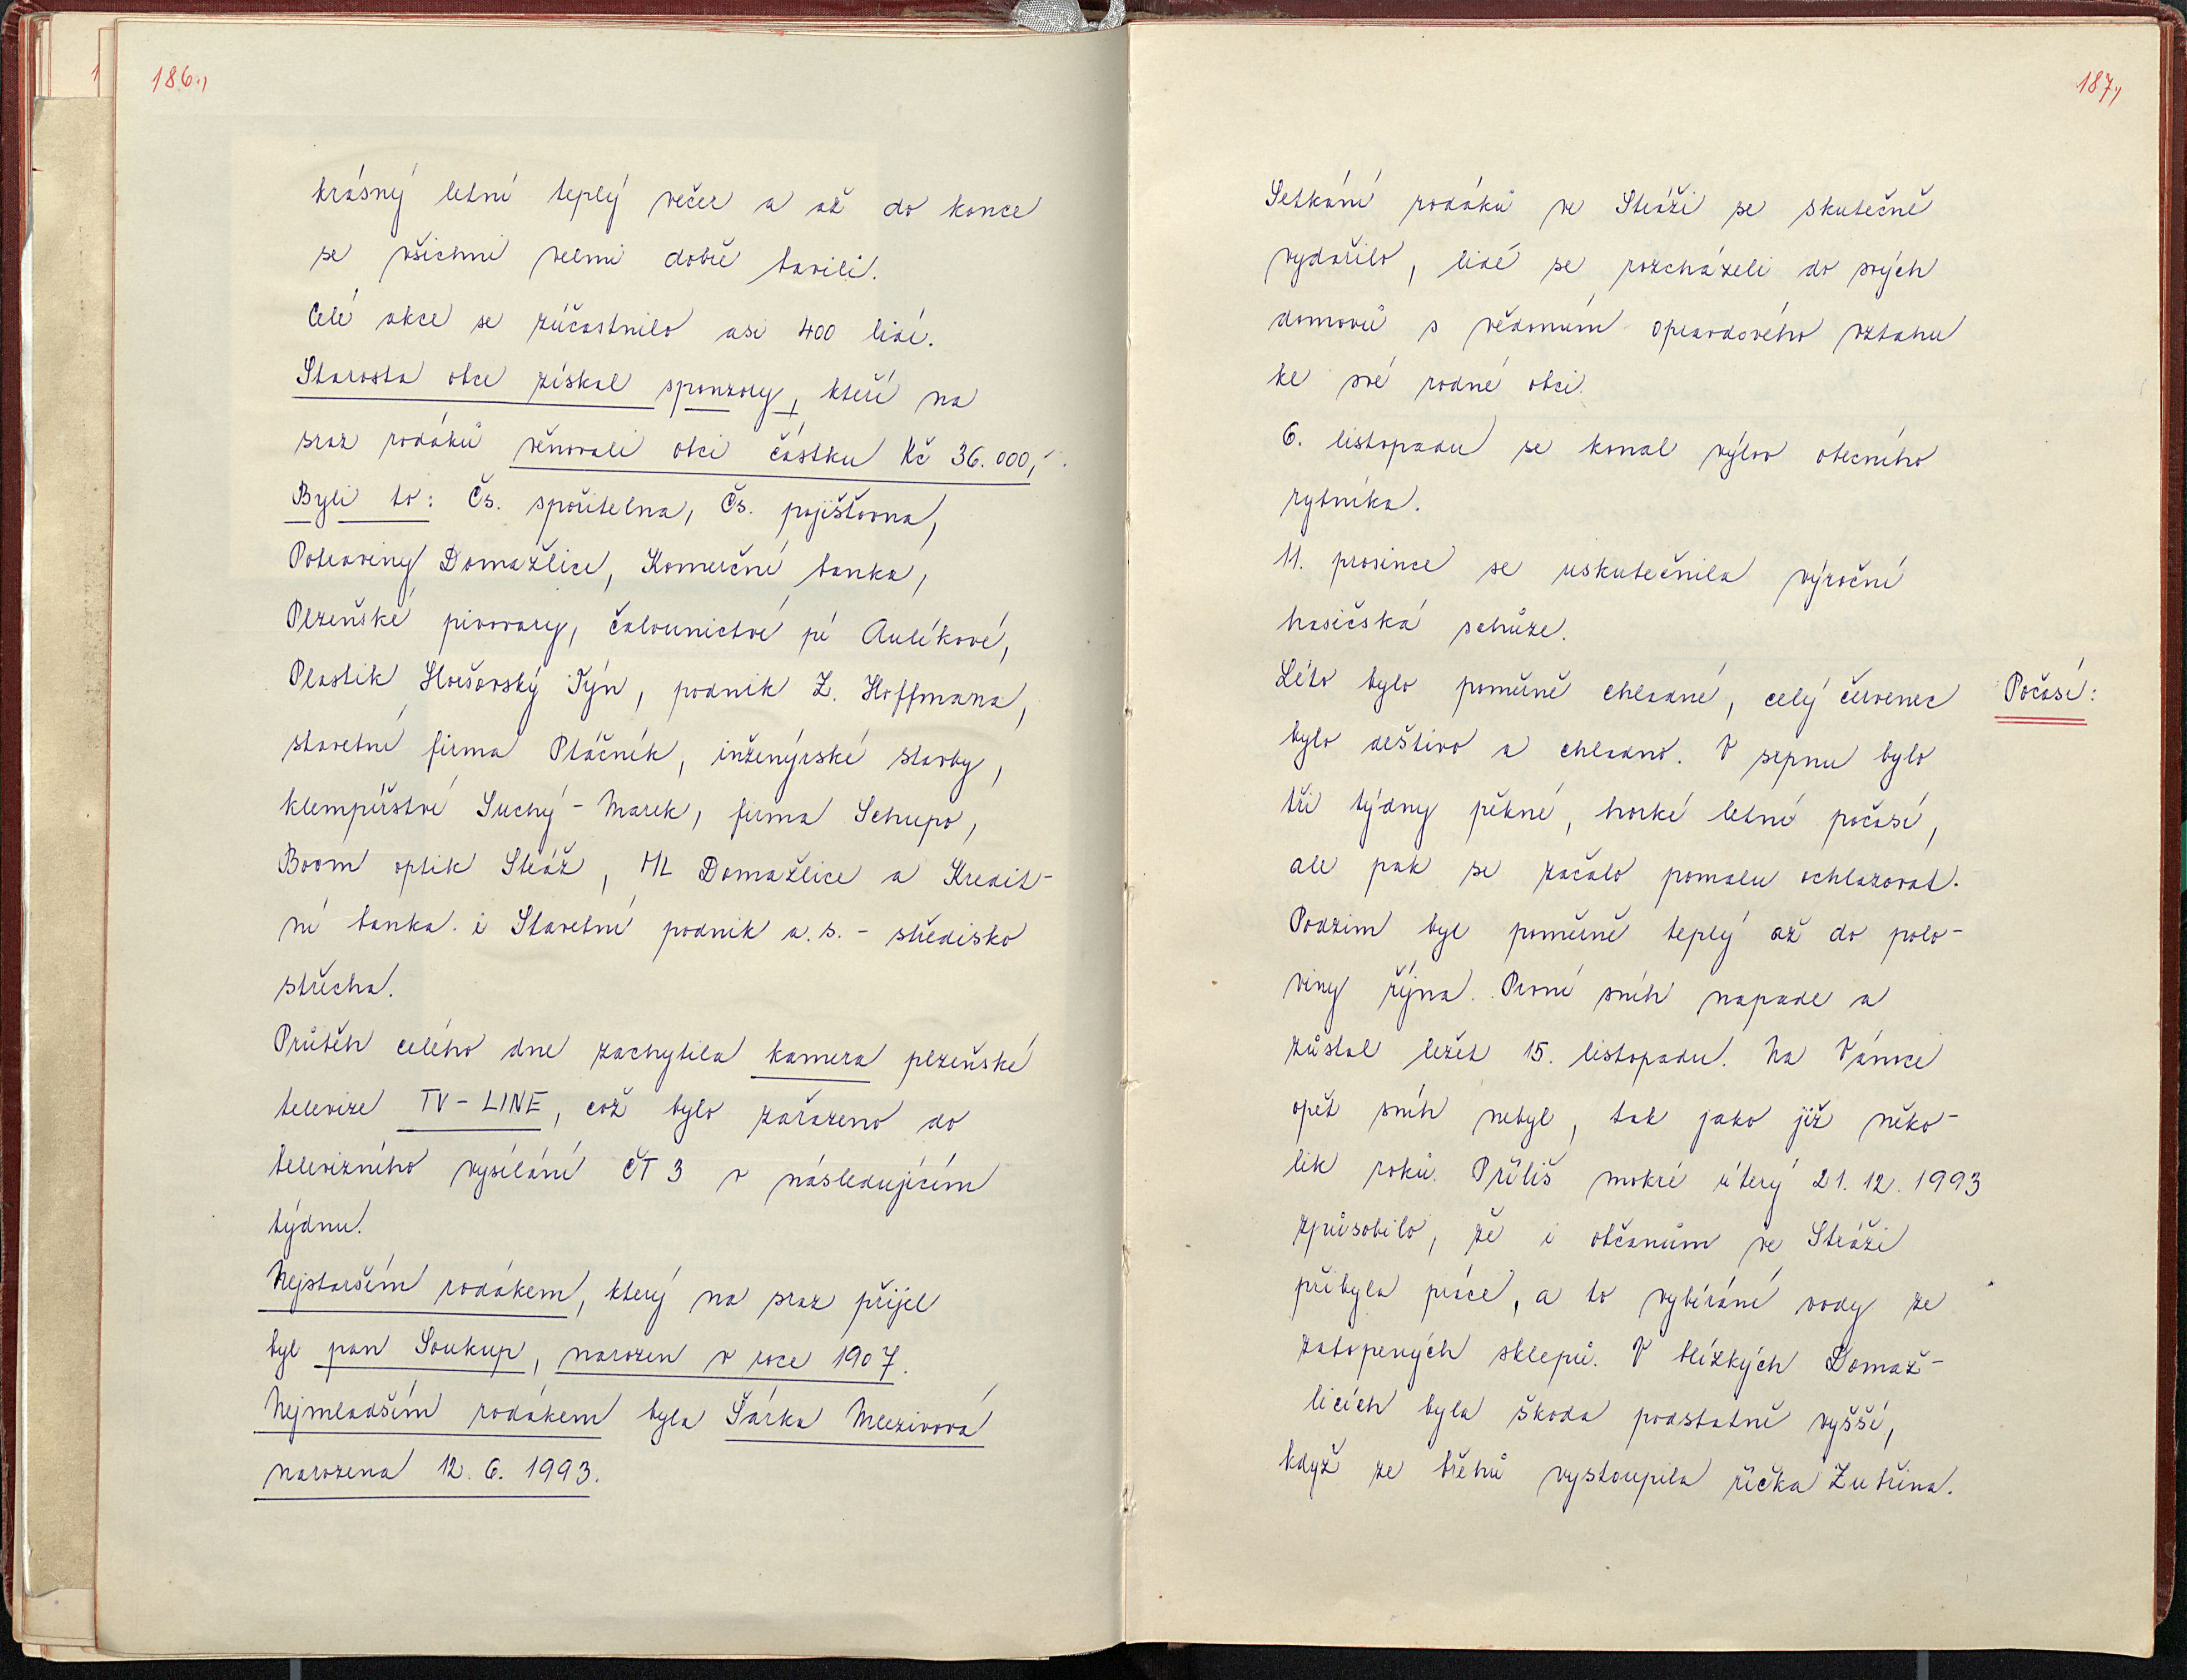 186.,
krásný letní teplý večer a až do konce
se všichni velmi dobře bavili.
Celé akce se zúčastnilo asi 400 lidí.
Starosta obce získal sponzory, kteří na
sraz rodáků věnovali obci částku Kč 36.000,-.
Byli to: Čs. spořitelna, Čs. pojišťovna,
Potraviny Domažlice, Komerční banka,
Plzeňské pivovary, čalounictví pí Aulíkové,
Plastik Horšovský Týn, podnik Z. Hoffmana,
stavební firma Ptáčník, inženýrské stavby,
klempířství Suchý - Marek, firma Schupo,
Boom optik Stráž, ML Domažlice a Kredit-
ní banka. i Stavební podnik a.s. - středisko
střecha.
Průběh celého dne zachytila kamera plzeňské
televize TV - LINE, což bylo zařazeno do
televizního vysílání ČT 3 v následujícím
týdnu.
Nejstarším rodákem, který na sraz přijel
byl pan Soukup, narozen v roce 1907.
Nejmladším rodákem byla Šárka Mlezivová
narozena 12. 6. 1993.
187.,
Setkání rodáků ve Stráži se skutečně
vydařilo, lidé se rozcházeli do svých
domovů s vědomím opravdového vztahu
ke své rodné obci.
6. listopadu se konal výlov obecního
rybníka.
11. prosince se uskutečnila výroční
hasičská schůze.
Léto bylo poměrně chladné, celý červenec Počasí:
bylo deštivo a chladno. V srpnu bylo
tři týdny pěkné, horké letní počasí,
ale pak se začalo pomalu ochlazovat.
Podzim byl poměrně teplý až do polo-
viny října. První sníh napadl a
zůstal ležet 15. listopadu. Na Vánoce
opět sníh nebyl, tak jako již něko-
lik roků. Příliš mokré úterý 21. 12. 1993
způsobilo, že i občanům ve Stráži
přibyla práce, a to vybírání vody ze
zatopených sklepů. V blízkých Domaž-
licích byla škoda podstatně vyšší,
když ze břehů vystoupila říčka Zubřina.